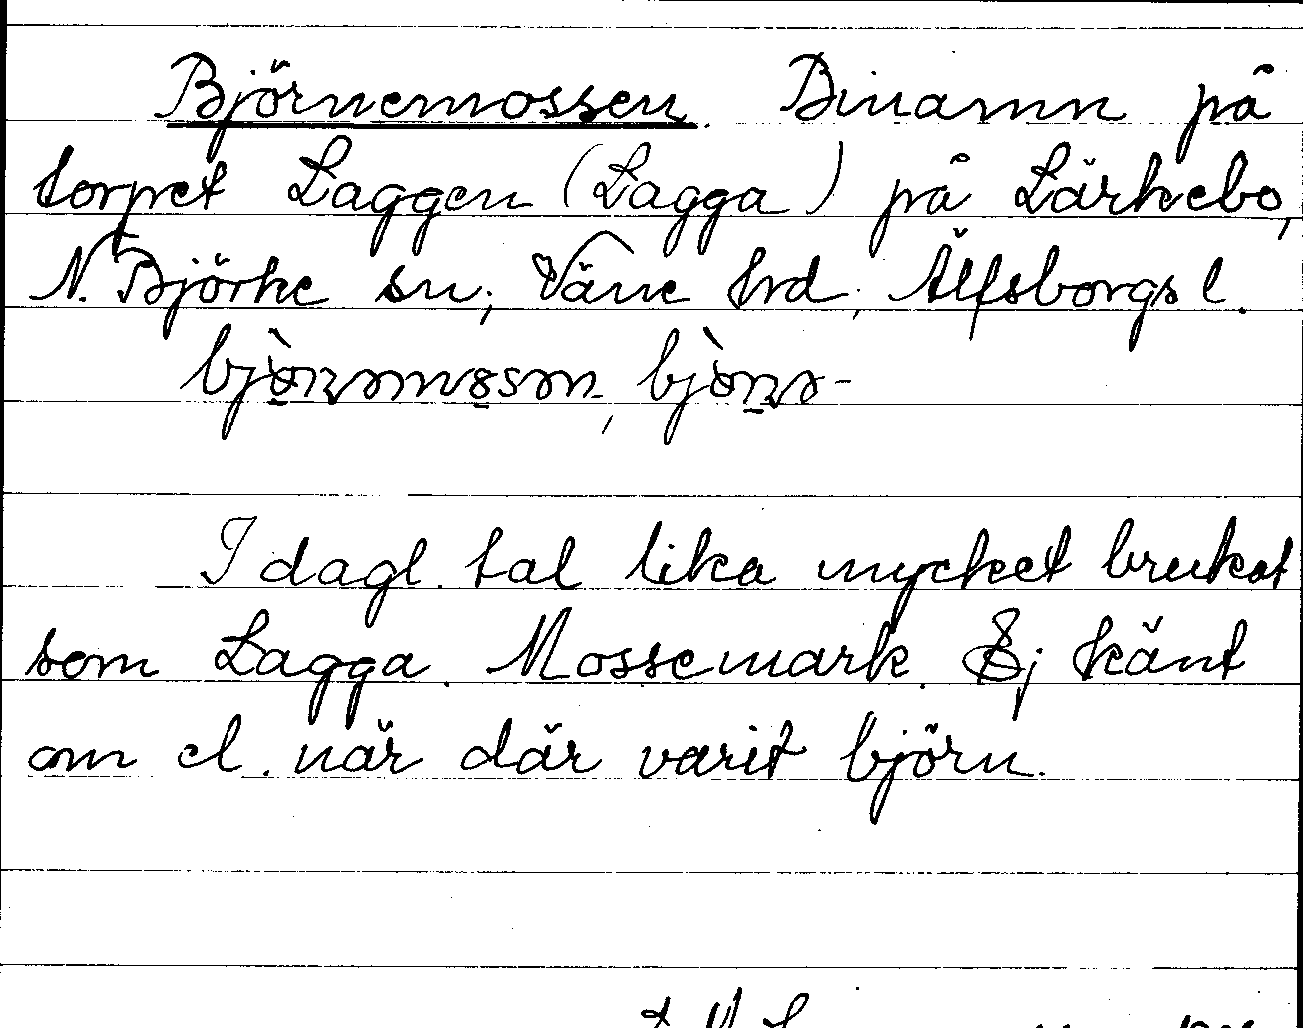 Björnemossen. Binamn på
torpet Laggen (Lagga) på Lärkebo,
N. Björke sn, Väne hrd, Älfsborgs l.
I dagl. tal lika mycket brukat
som Lagga. Mossemark. Ej känt
om el. när där varit björn.